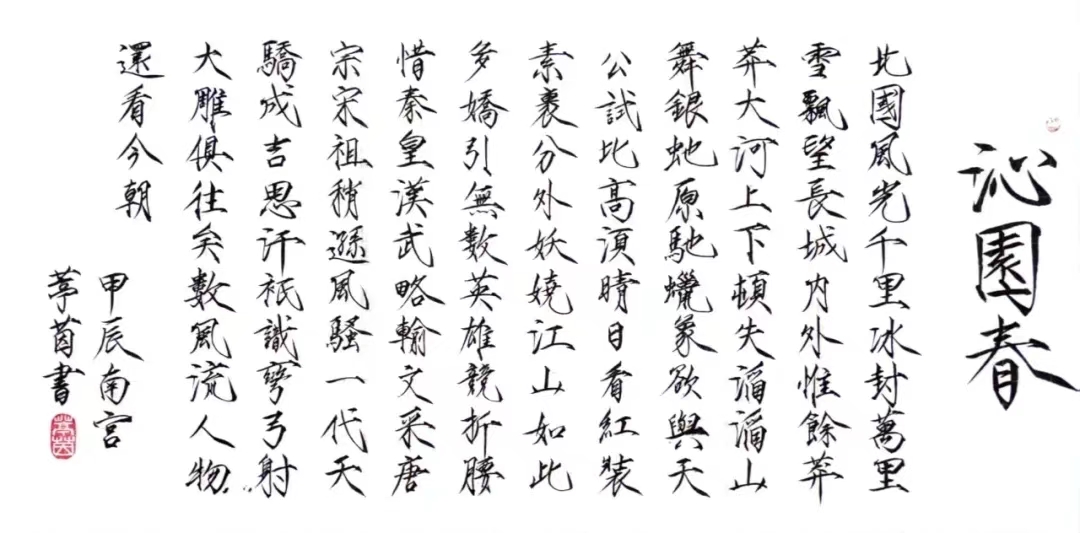 沁園春
北國風光千里冰封萬里
雪飄望長城內外惟餘莽
莽大河上下頓失滔滔山
舞銀虵原馳蠟象欲與天
公試比高湏晴日看紅裝
素裹分外妖嬈江山如此
多嬌引無數英雄競折腰
惜秦皇漢武略輸文采唐
宗宋祖稍遜風騷一代天
驕成吉思汗衹識彎弓射
大雕俱往矣數風流人物
還看今朝
甲辰南宮
葶茵書